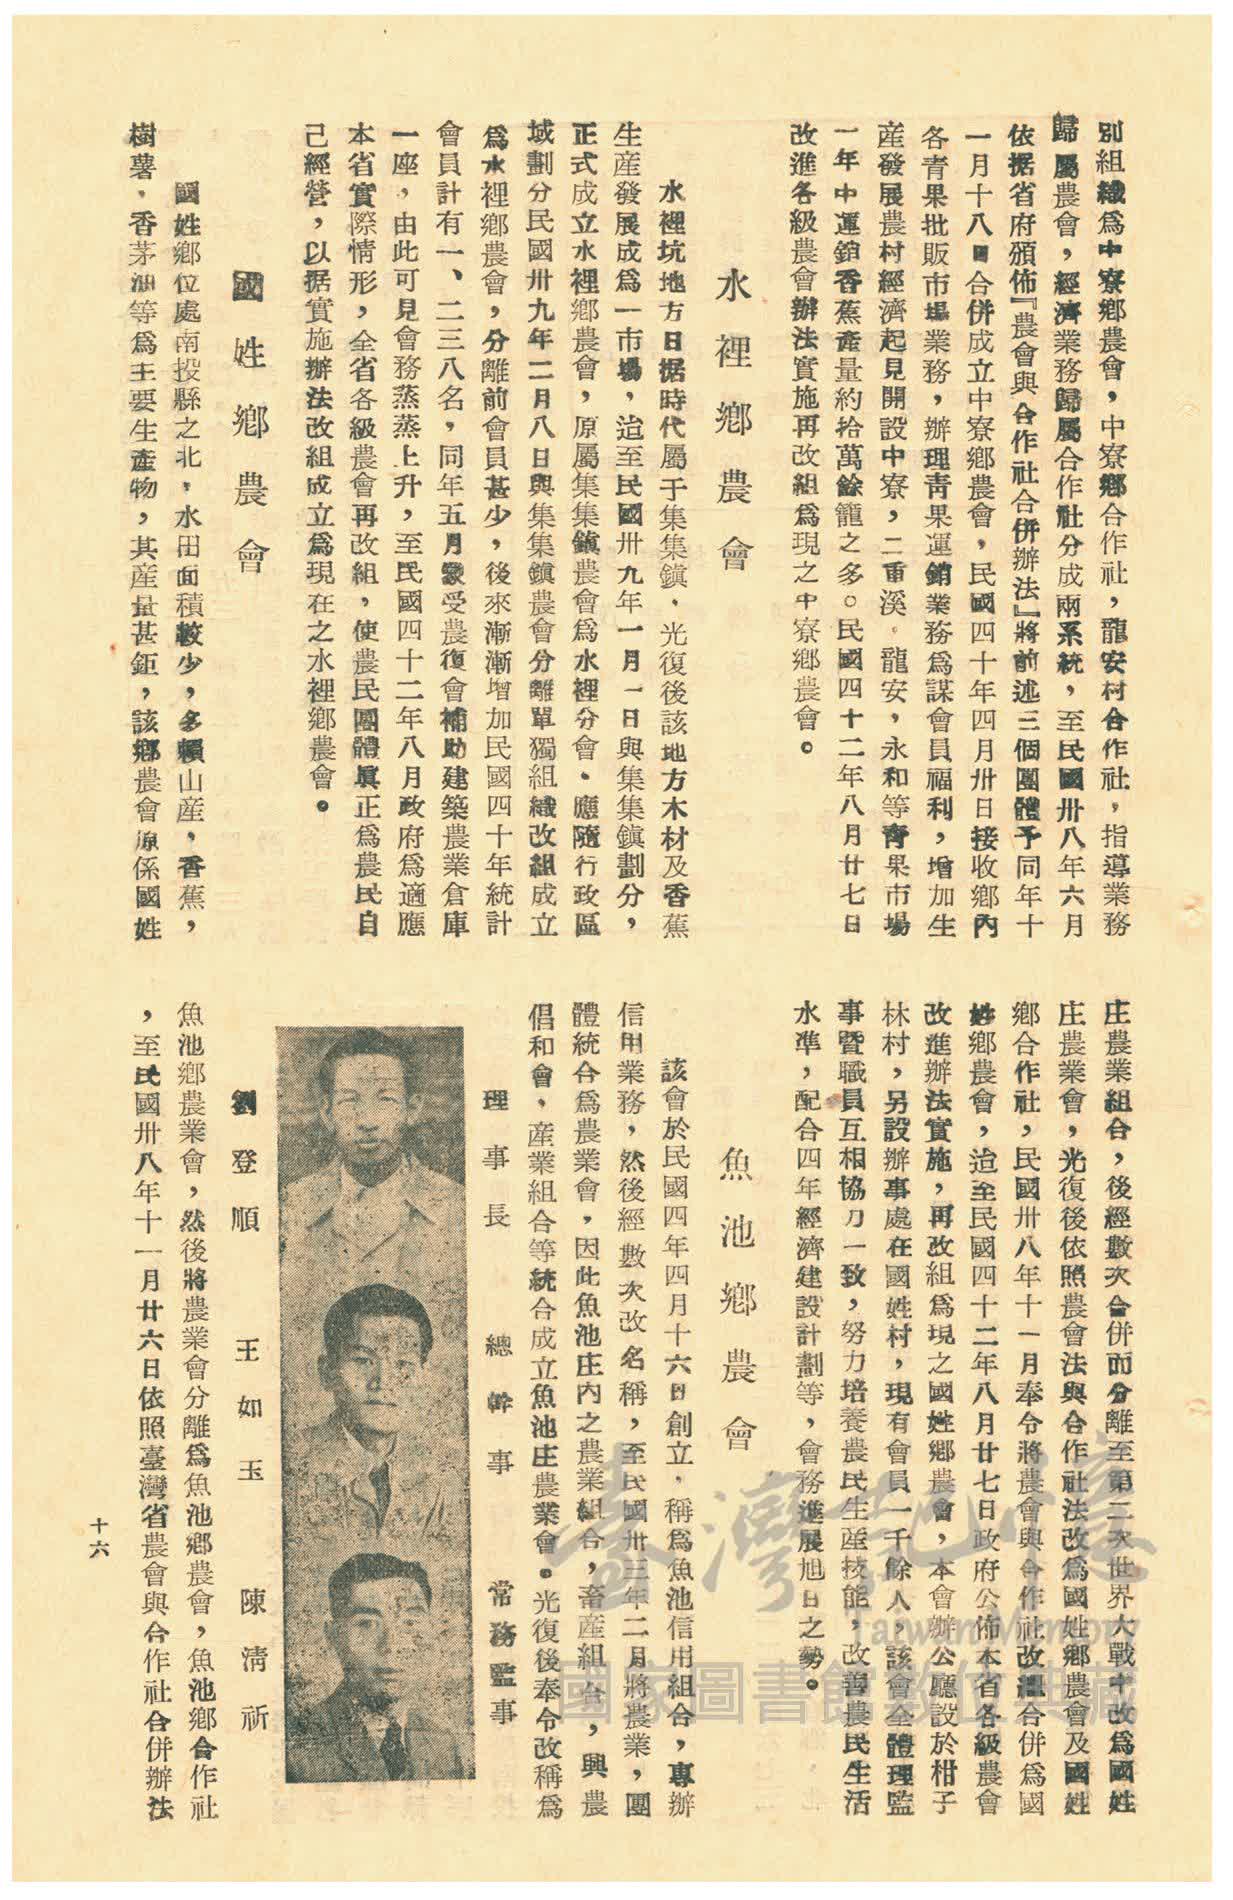 別組織爲中寮鄉農會，中寮鄉合作社，龍安村合作社，指導業務
歸屬農會，經濟業務歸屬合作社分成兩系統，至民國卅八年六月
依据省府頒佈『農會與合作社合併辦法』將前述三個團體予同年十
一月十八日合併成立中寮鄉農會，民國四十年四月卅日接收鄉內
各青果批販市場業務，辦理青果運銷業務爲謀會員福利，增加生
產發展農村經濟起見開設中寮，二重溪．龍安，永和等青果市場
一年中運銷香蕉產量約拾萬餘籠之多。民國四十二年八月廿七日
改進各級農會辦法實施再改組爲現之中寮鄉農會。
水裡鄉農會
水裡坑地方日据時代屬于集集鎭．光復後該地方木材及香蕉
生產發展成爲一市場，迨至民國卅九年一月一日與集集鎭劃分，
正式成立水裡鄉農會，原屬集集鎭農會爲水裡分會．應隨行政區
域劃分民國卅九年二月八日與集集鎭農會分離單獨組織改組成立
爲水裡鄉農會，分離前會員甚少，後來漸漸增加民國四十年統計
會員計有一、二三八名，同年五月蒙受農復會補助建築農業倉庫
一座，由此可見會務蒸蒸上升，至民國四十二年八月政府爲適應
本省實際情形，全省各級農會再改組，使農民團體眞正爲農民自
己經營，以据實施辦法改組成立爲現在之水裡鄉農會。
國姓鄉農會
國姓鄉位處南投縣之北，水田面積較少，多賴山產，香蕉，
樹薯．香茅油等爲主要生產物，其產量甚鉅，該鄉農會原係國姓
庄農業組合，後經數次合併而分離至第二次世界大戰中改爲國姓
庄農業會，光復後依照農會法與合作社法改爲國姓鄉農會及國姓
鄉合作社，民國卅八年十一月奉令將農會與合作社改組合併爲國
姓鄉農會，迨至民國四十二年八月廿七日政府公佈本省各級農會
改進辦法實施，再改組爲現之國姓鄉農會，本會辦公廳設於柑子
林村，另設辦事處在國姓村，現有會員一千餘人，該會全體理監
事暨職員互相協力一致，努力培養農民生產技能，改善農民生活
水準，配合四年經濟建設計劃等，會務進展旭日之勢。
魚池鄉農會
該會於民國四年四月十六日創立．稱爲魚池信用組合，專辦
信用業務，然後經數次改名稱，至民國卅三年二月將農業，團
體統合爲農業會，因此魚池庄內之農業組合，畜產組合，興農
倡和會．產業組合等統合成立魚池庄農業會。光復後奉令改稱爲
理事長　總幹事　常務監事
劉登順　王如玉　陳淸祈
魚池鄉農業會，然後將農業會分離爲魚池鄉農會，魚池鄉合作社
，至民國卅八年十一月廿六日依照臺灣省農會與合作社合併辦法
十六
臺灣記憶
Taiwan Memory
國家圖書館數位典藏